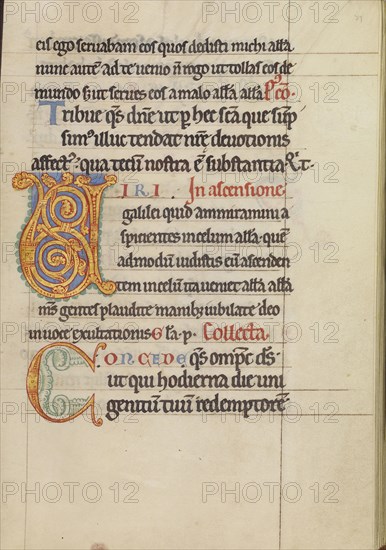 eis ego seruabam eos quos dedisti michi alła.
nunc autē ad te uenio ñ rogo ut tollas eos de
mundo s; ut serues eos a malo alła alła. Pꝰ cō.
Tribue q̄s dñe ut p hec sc̄a que sūp
simꝰ illuc tendat nr̄e deuotionis
affectꝰ: qua tecū nostra ē substantia. P. t.
VIRI. In ascensione
galilei quid ammiramini a
spicientes in celum alła. quē
admodū uidistis eū ascenden
tem in celū ita ueniet alła alła
ōms gentes plaudite manibꝫ iubilate deo
in uoce exultationis. Gła. p. Collecta.
CONCEDE q̄s omp̄c ds̄.
ut qui hodierna die uni
genitū tuū redemptorē
PHOTO 12